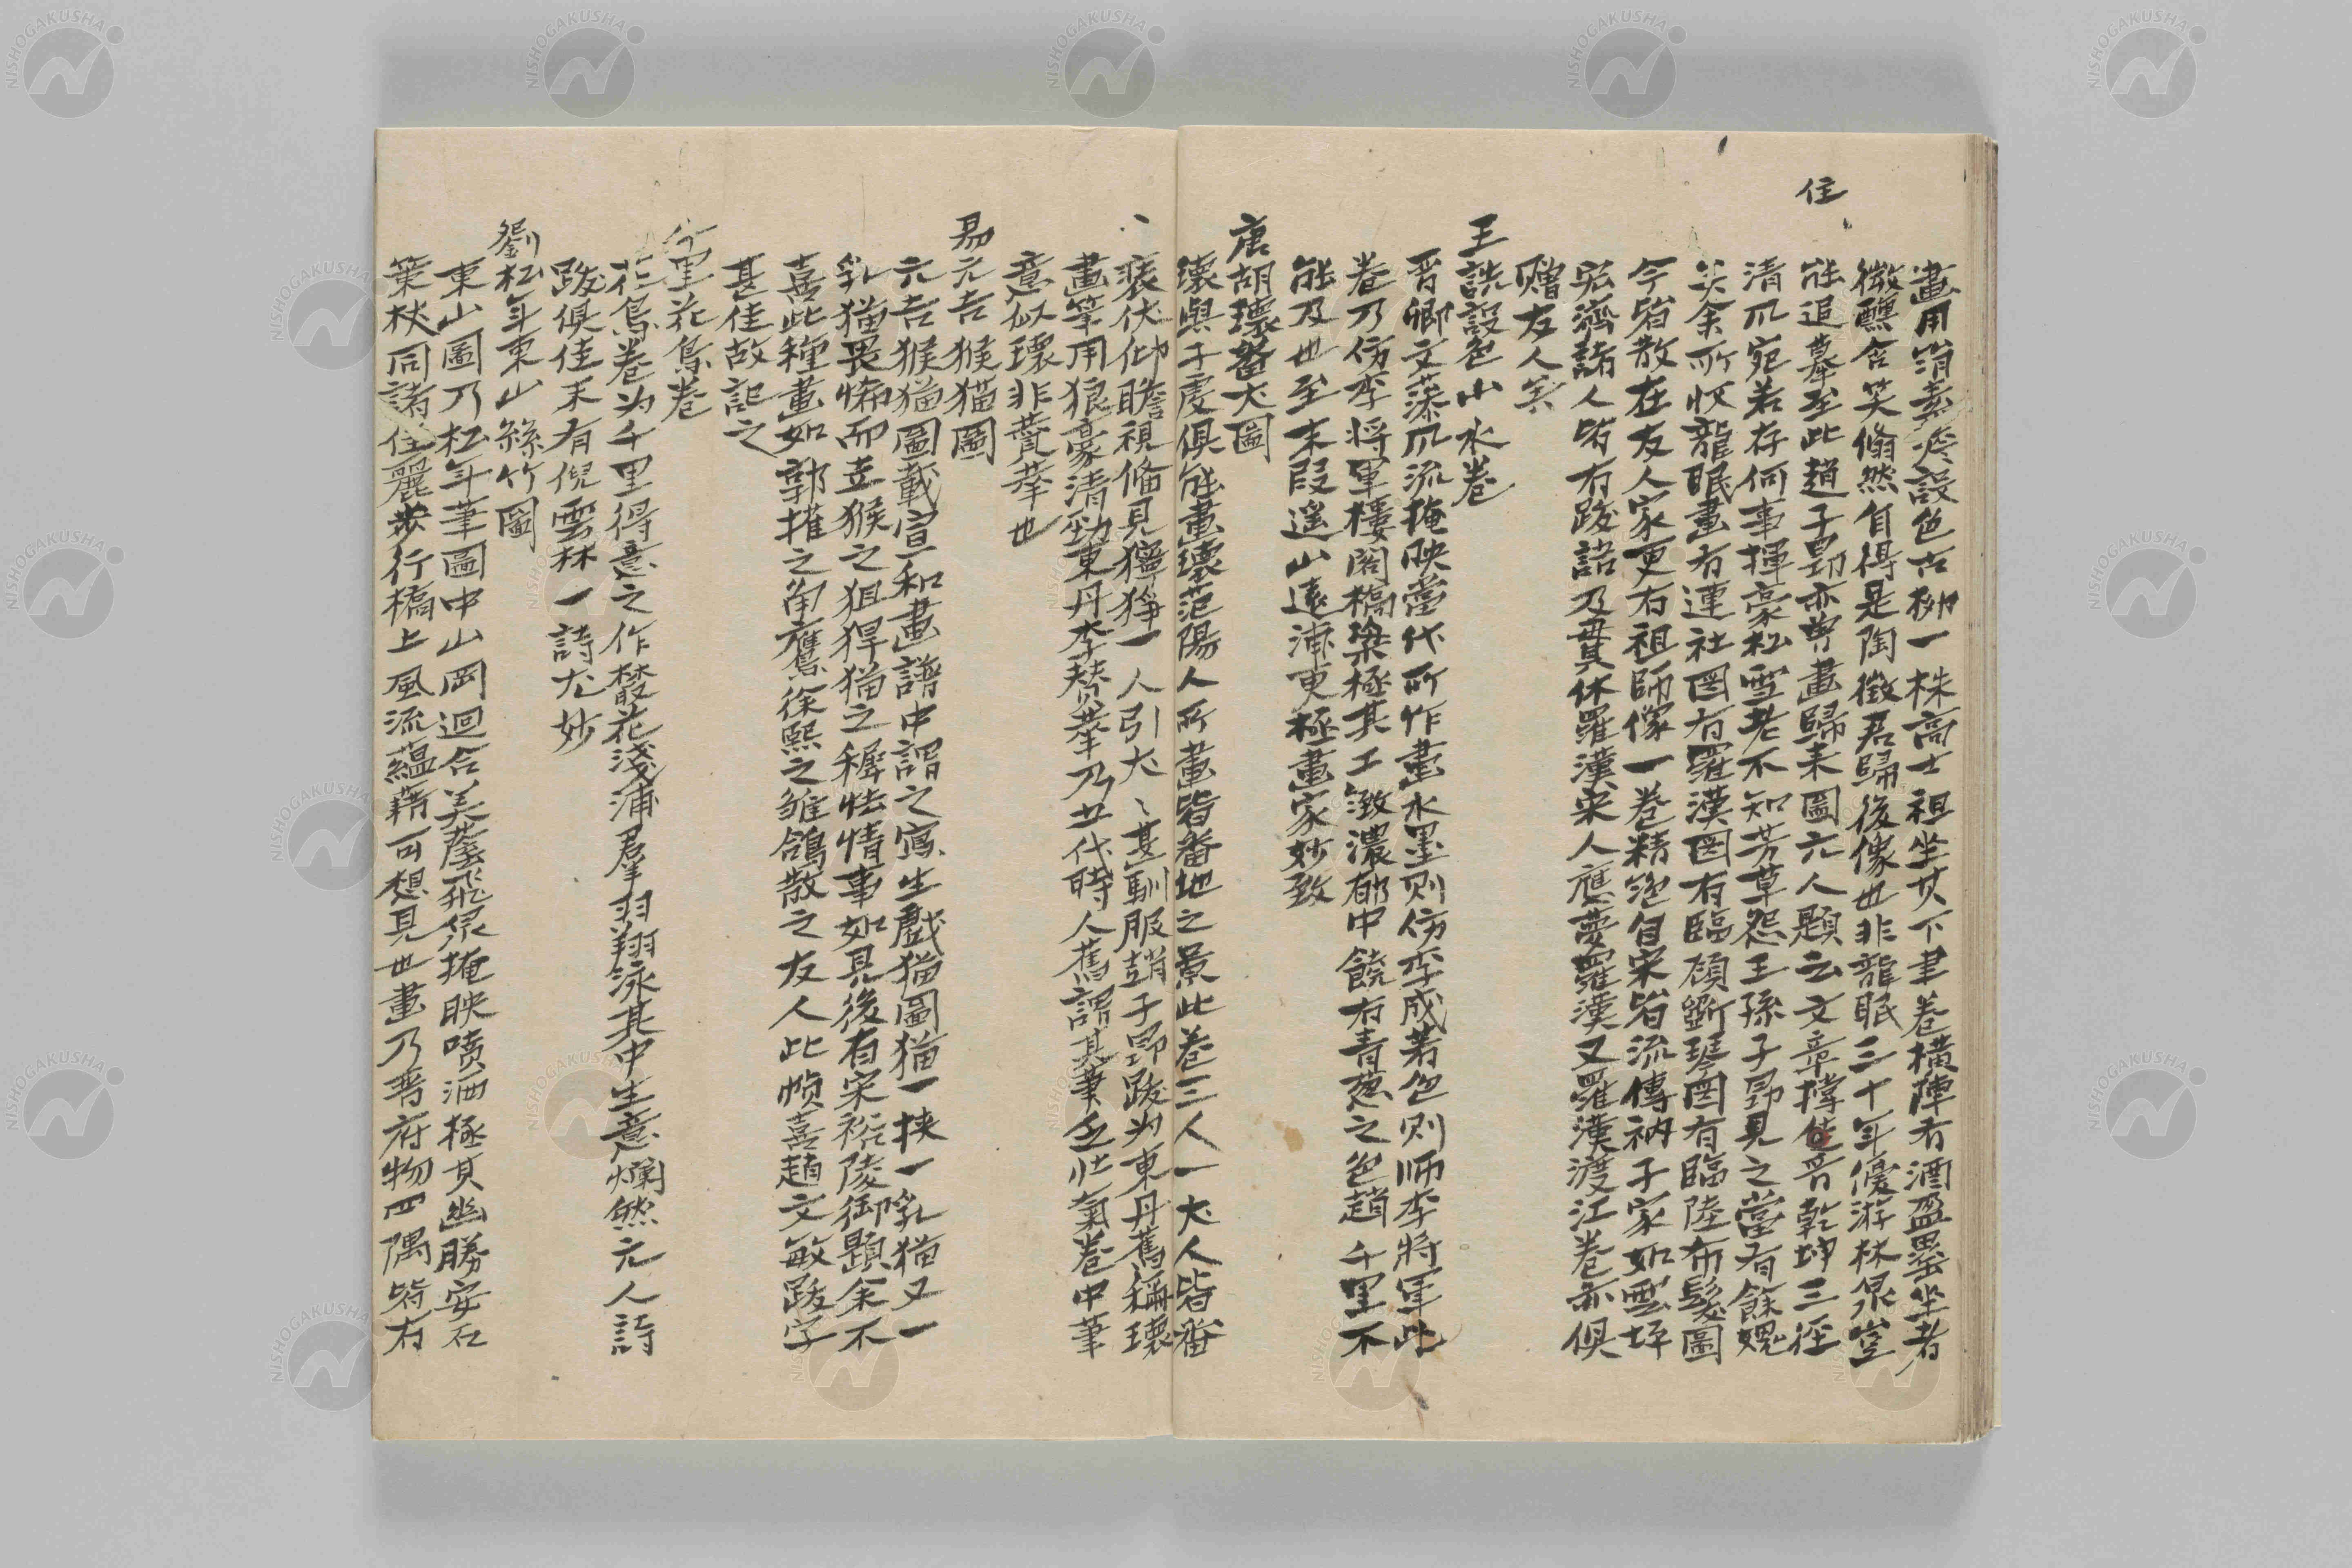 住
畫用涓素淡設色古柳一株高士祖坐其下聿卷橫陣有酒盈罍坐者
微醺含笑翛然自得是陶徵君歸後像也非龍眠三十年優游林泉豈
能追摹至此趙子昴亦曽畫歸来圖六人題云文章撐住晋乾坤三徑
清爪宛若存何事揮豪松雪老不知芳草怨王孫子昴見之當有餘媿
矣余所收龍眠畫有連社圖有羅漢圖有臨顔斵琴圖有臨陸布髮圖
今皆散在友人家更有祖師像一卷精絶自宋皆流傳衲子家如雲坪
宏濟諸人皆有跋語乃貫休羅漢宋人應夢羅漢又羅漢渡江卷亦俱
贈友人矣
王詵設色山水卷
晋卿文藻爪流掩映當代所作畫水墨則仿李成著色則师李將軍此
卷乃仿李将軍樓閣橋梁極其工緻濃郁中饒有青葱之色趙千里不
能及也至末段遥山遠浦更極畫家妙致
唐胡瓌畨犬圖
瓌與子虔俱能畫瓌范陽人所畫皆畨地之景此卷三人一犬人皆畨
裘伏仰瞻視俻見獰猙一人引犬〻甚馴服趙子昴跋为東丹舊稱瓌
畫筆用狼豪清勁東丹李賛華乃五代時人舊謂其筆乏壮氣卷中筆
意似瓌非賛華也
易元吉猴猫圖
六吉猴猫圖載宣和畫譜中謂之寫生戯猫圖猫一挟一乳猫又一
乳猫畏怖而立猴之狙猂猫之穉怯情事如見後有宋裕陵御題余不
喜此種畫如郭㩁之角鷹徐熙之雏鴿散之友人此幀喜趙文敏跋字
甚佳故記之
千里花鳥卷
花鳥卷为千里得意之作叢花淺浦羣羽翔泳其中生意爛然元人詩
跋俱佳末有倪雲林一詩尤妙
劉松年東山絲竹圖
東山圖乃松年筆圖中山岡迴合美蔭飛泉掩映噴洒極其幽勝安石
策杖同諸佳麗歩行橋上風流蘊藉可想見也畫乃晋府物四隅皆有